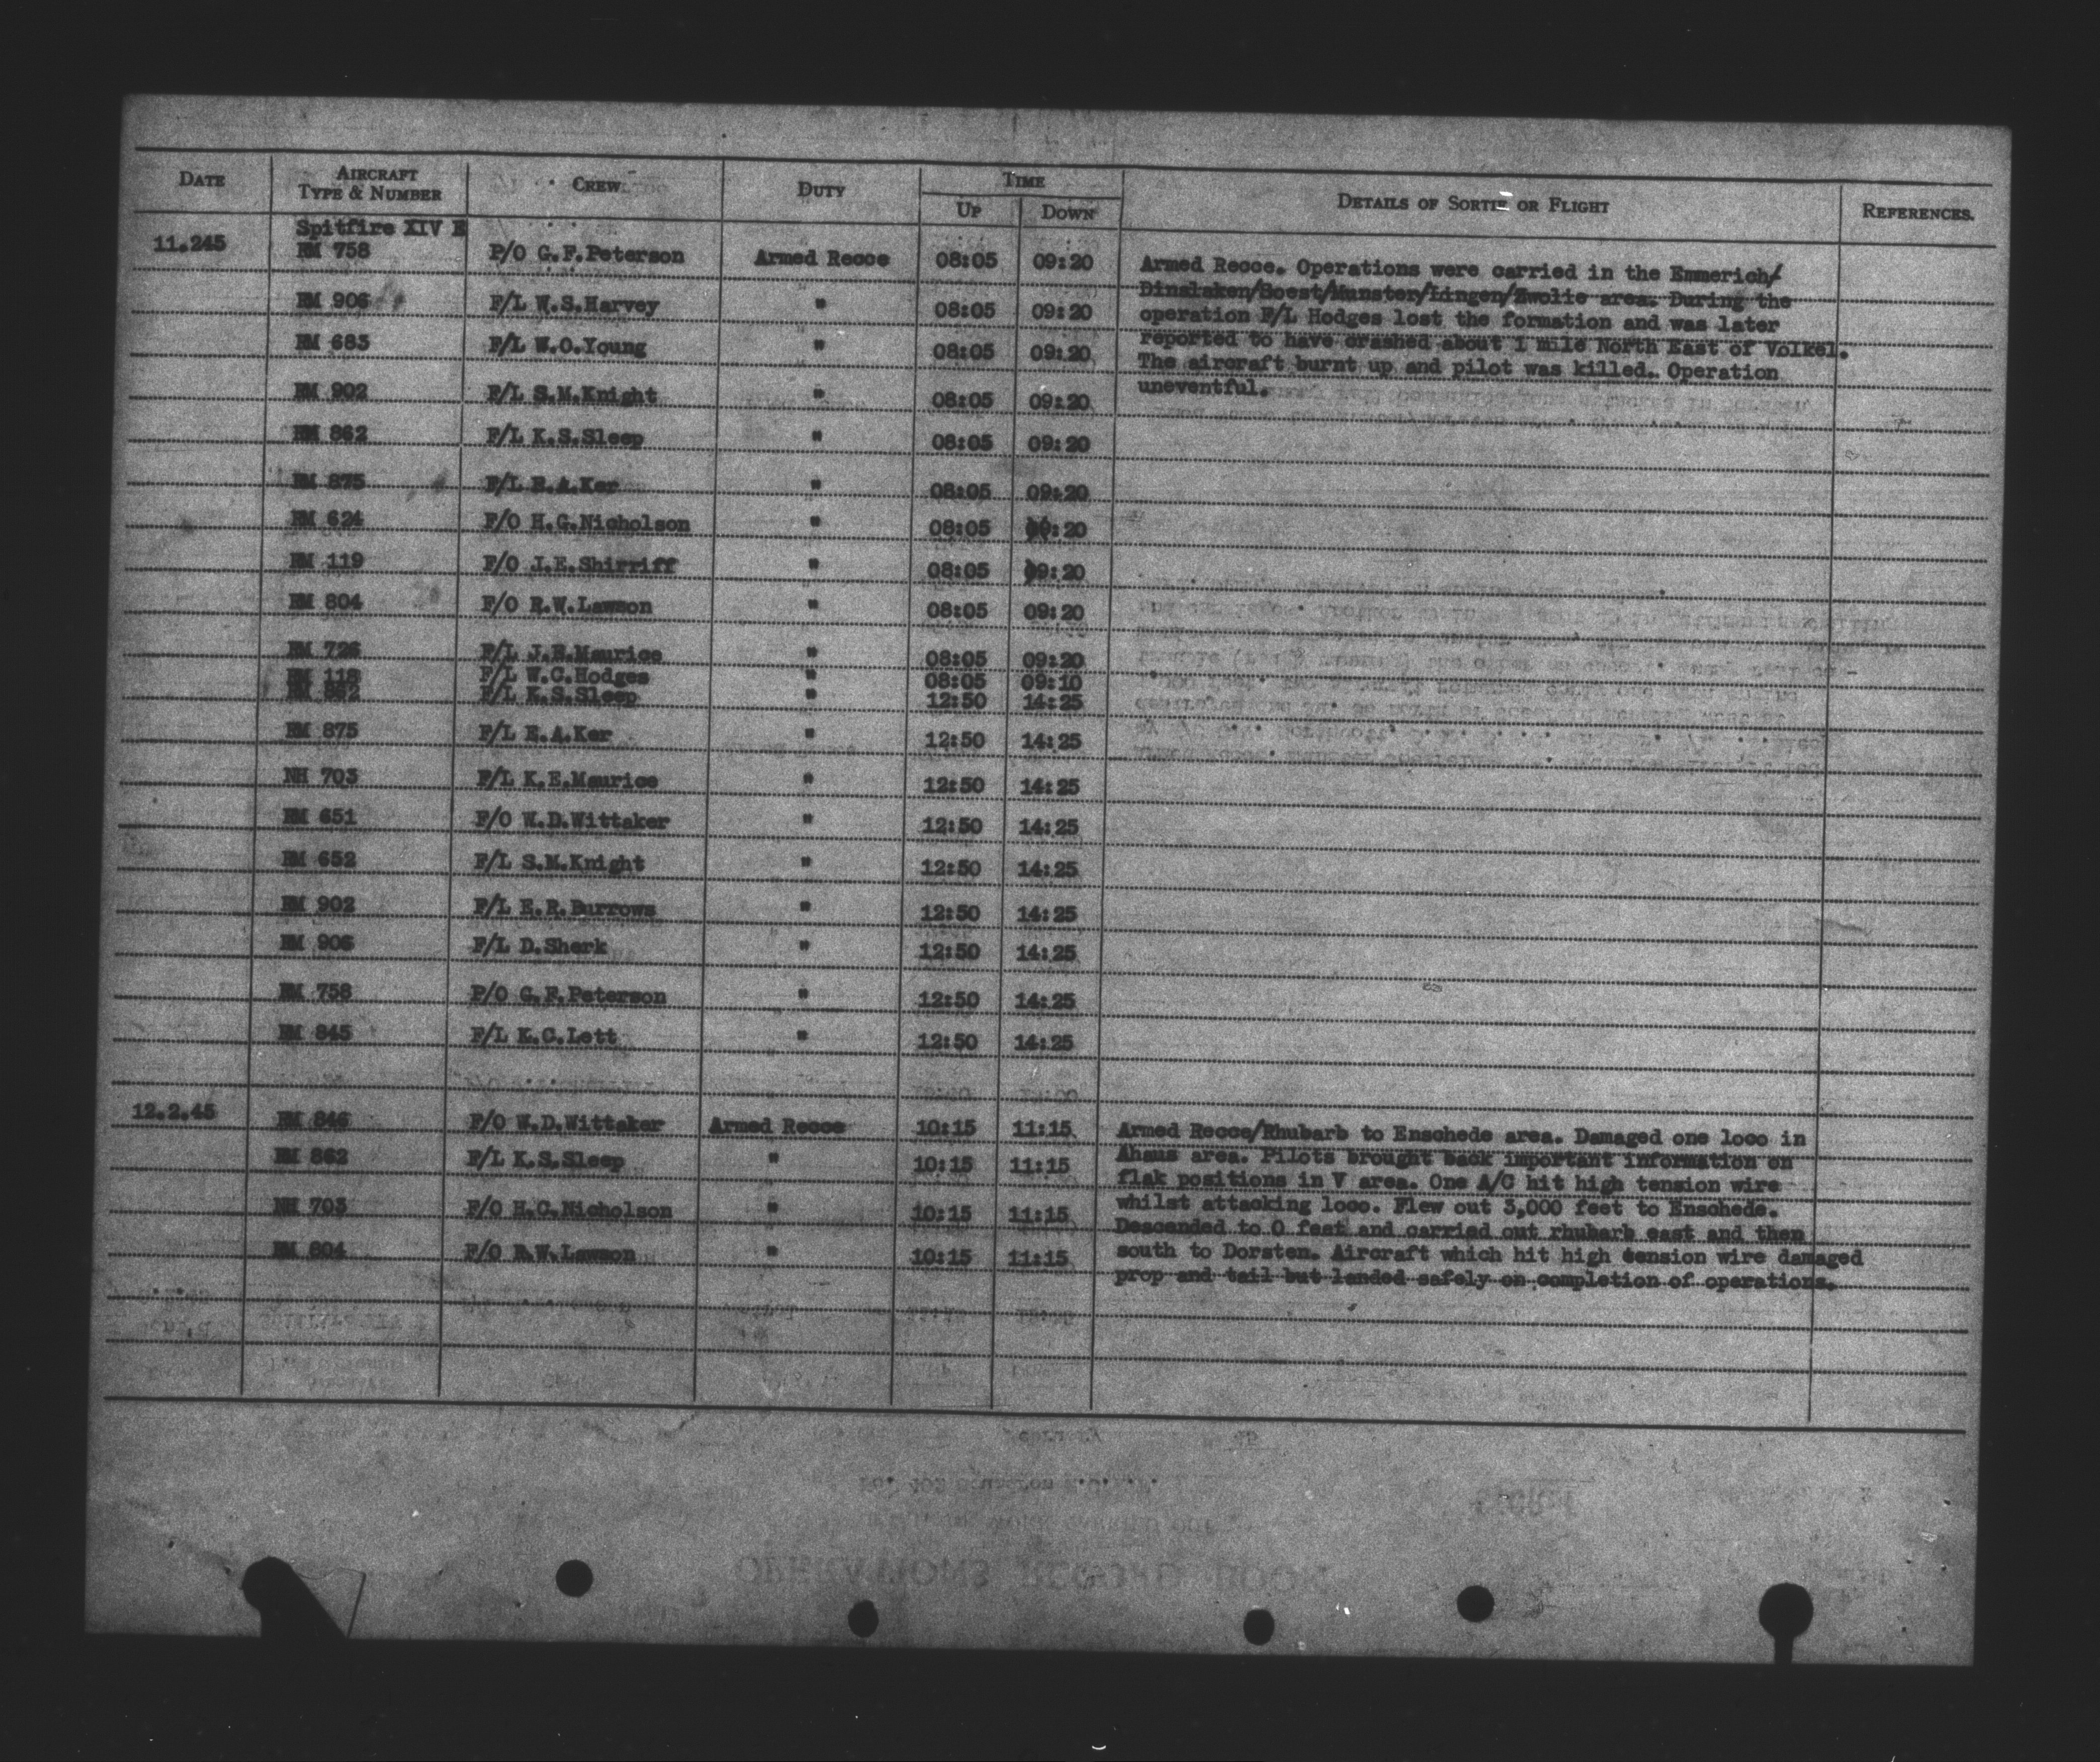 DATE AIRCRAFT TYPE & NUMBER CREW DUTY TIME UP DOWN DETAILS OF SORTIE OR FLIGHT REFERENCES.
Spitfire XIV E
11.245 RM 758 P/O G.F.Peterson Armed Recce 08:05 09:20 Armed Recce. Operations were carried in the Emmerich/
Dinslaken/Soest/Munster/Lingen/Zwolle area. During the
RM 906 F/L W.S.Harvey " 08:05 09:20 operation F/L Hodges lost the formation and was later
RM 683 F/L W.O.Young " 08:05 09:20 reported to have crashed about 1 mile North East of Volkel.
The aircraft burnt up and pilot was killed. Operation
RM 902 F/L S.M.Knight " 08:05 09:20 uneventful.
RM 862 F/L K.S.Sleep " 08:05 09:20
RM 875 F/L E.A.Ker " 08:05 09:20
RM 624 F/O H.G.Nicholson " 08:05 09:20
RM 119 F/O J.E.Shirriff " 08:05 09:20
RM 804 F/O R.W.Lawson " 08:05 09:20
RM 726 F/L J.B.Maurice " 08:05 09:20
RM 118 F/L W.C.Hodges " 08:05 09:10
RM 862 F/L K.S.Sleep " 12:50 14:25
RM 875 F/L E.A.Ker " 12:50 14:25
NH 703 F/L K.E.Maurice " 12:50 14:25
RM 651 F/O W.D.Wittaker " 12:50 14:25
RM 652 F/L S.M.Knight " 12:50 14:25
RM 902 F/L E.R.Burrows " 12:50 14:25
RM 906 F/L D.Sherk " 12:50 14:25
RM 758 P/O G.F.Peterson " 12:50 14:25
RM 845 F/L K.C.Lett " 12:50 14:25
12.2.45 RM 846 F/O W.D.Wittaker Armed Recce 10:15 11:15 Armed Recce/Rhubarb to Enschede area. Damaged one loco in
RM 862 F/L K.S.Sleep " 10:15 11:15 Ahaus area. Pilots brought back important information on
flak positions in V area. One A/C hit high tension wire
NH 703 F/O H.C.Nicholson " 10:15 11:15 whilst attacking loco. Flew out 3,000 feet to Enschede.
Descended to 0 feet and carried out rhubarb east and then
RM 804 F/O R.W.Lawson " 10:15 11:15 south to Dorsten. Aircraft which hit high tension wire damaged
prop and tail but landed safely on completion of operations.